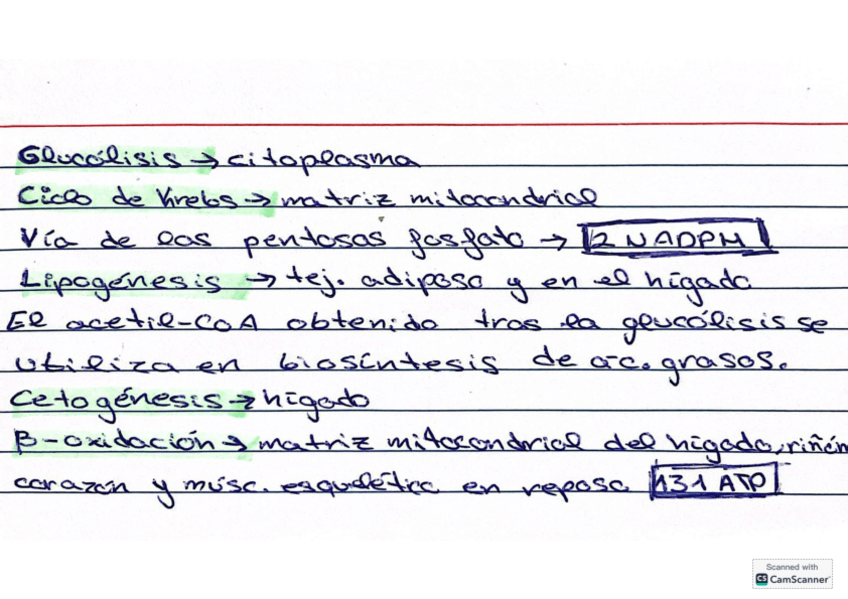 Glucólisis → citoplasma
Ciclo de Krebs → matriz mitocondrial
Vía de las pentosas fosfato → 2 NADPH
Lipogénesis → tej. adiposo y en el hígado
El acetil-CoA obtenido tras la glucólisis se
utiliza en biosíntesis de ác. grasos.
Cetogénesis → hígado
β-oxidación → matriz mitocondrial del hígado, riñón
corazón y músc. esquelético en reposo 131 ATP
Scanned with
CS CamScanner